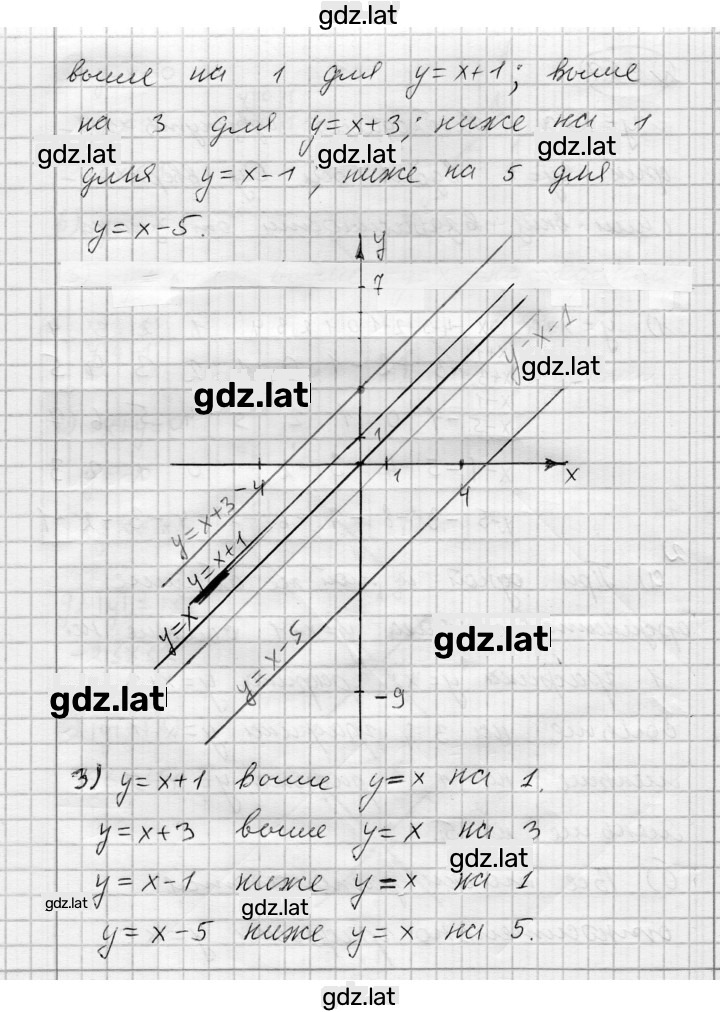 gdz.lat
выше на 1 для y=x+1; выше
на 3 для y=x+3; ниже на 1
gdz.lat gdz.lat gdz.lat
для y=x-1; ниже на 5 для
y=x-5.
y
7
y=x-1
gdz.lat
gdz.lat
1
-4 1 4 x
y=x+3
y=x+1
y=x
y=x-5
gdz.lat
gdz.lat
-9
3) y=x+1 выше y=x на 1.
y=x+3 выше y=x на 3
gdz.lat
y=x-1 ниже y=x на 1
gdz.lat gdz.lat
y=x-5 ниже y=x на 5.
gdz.lat